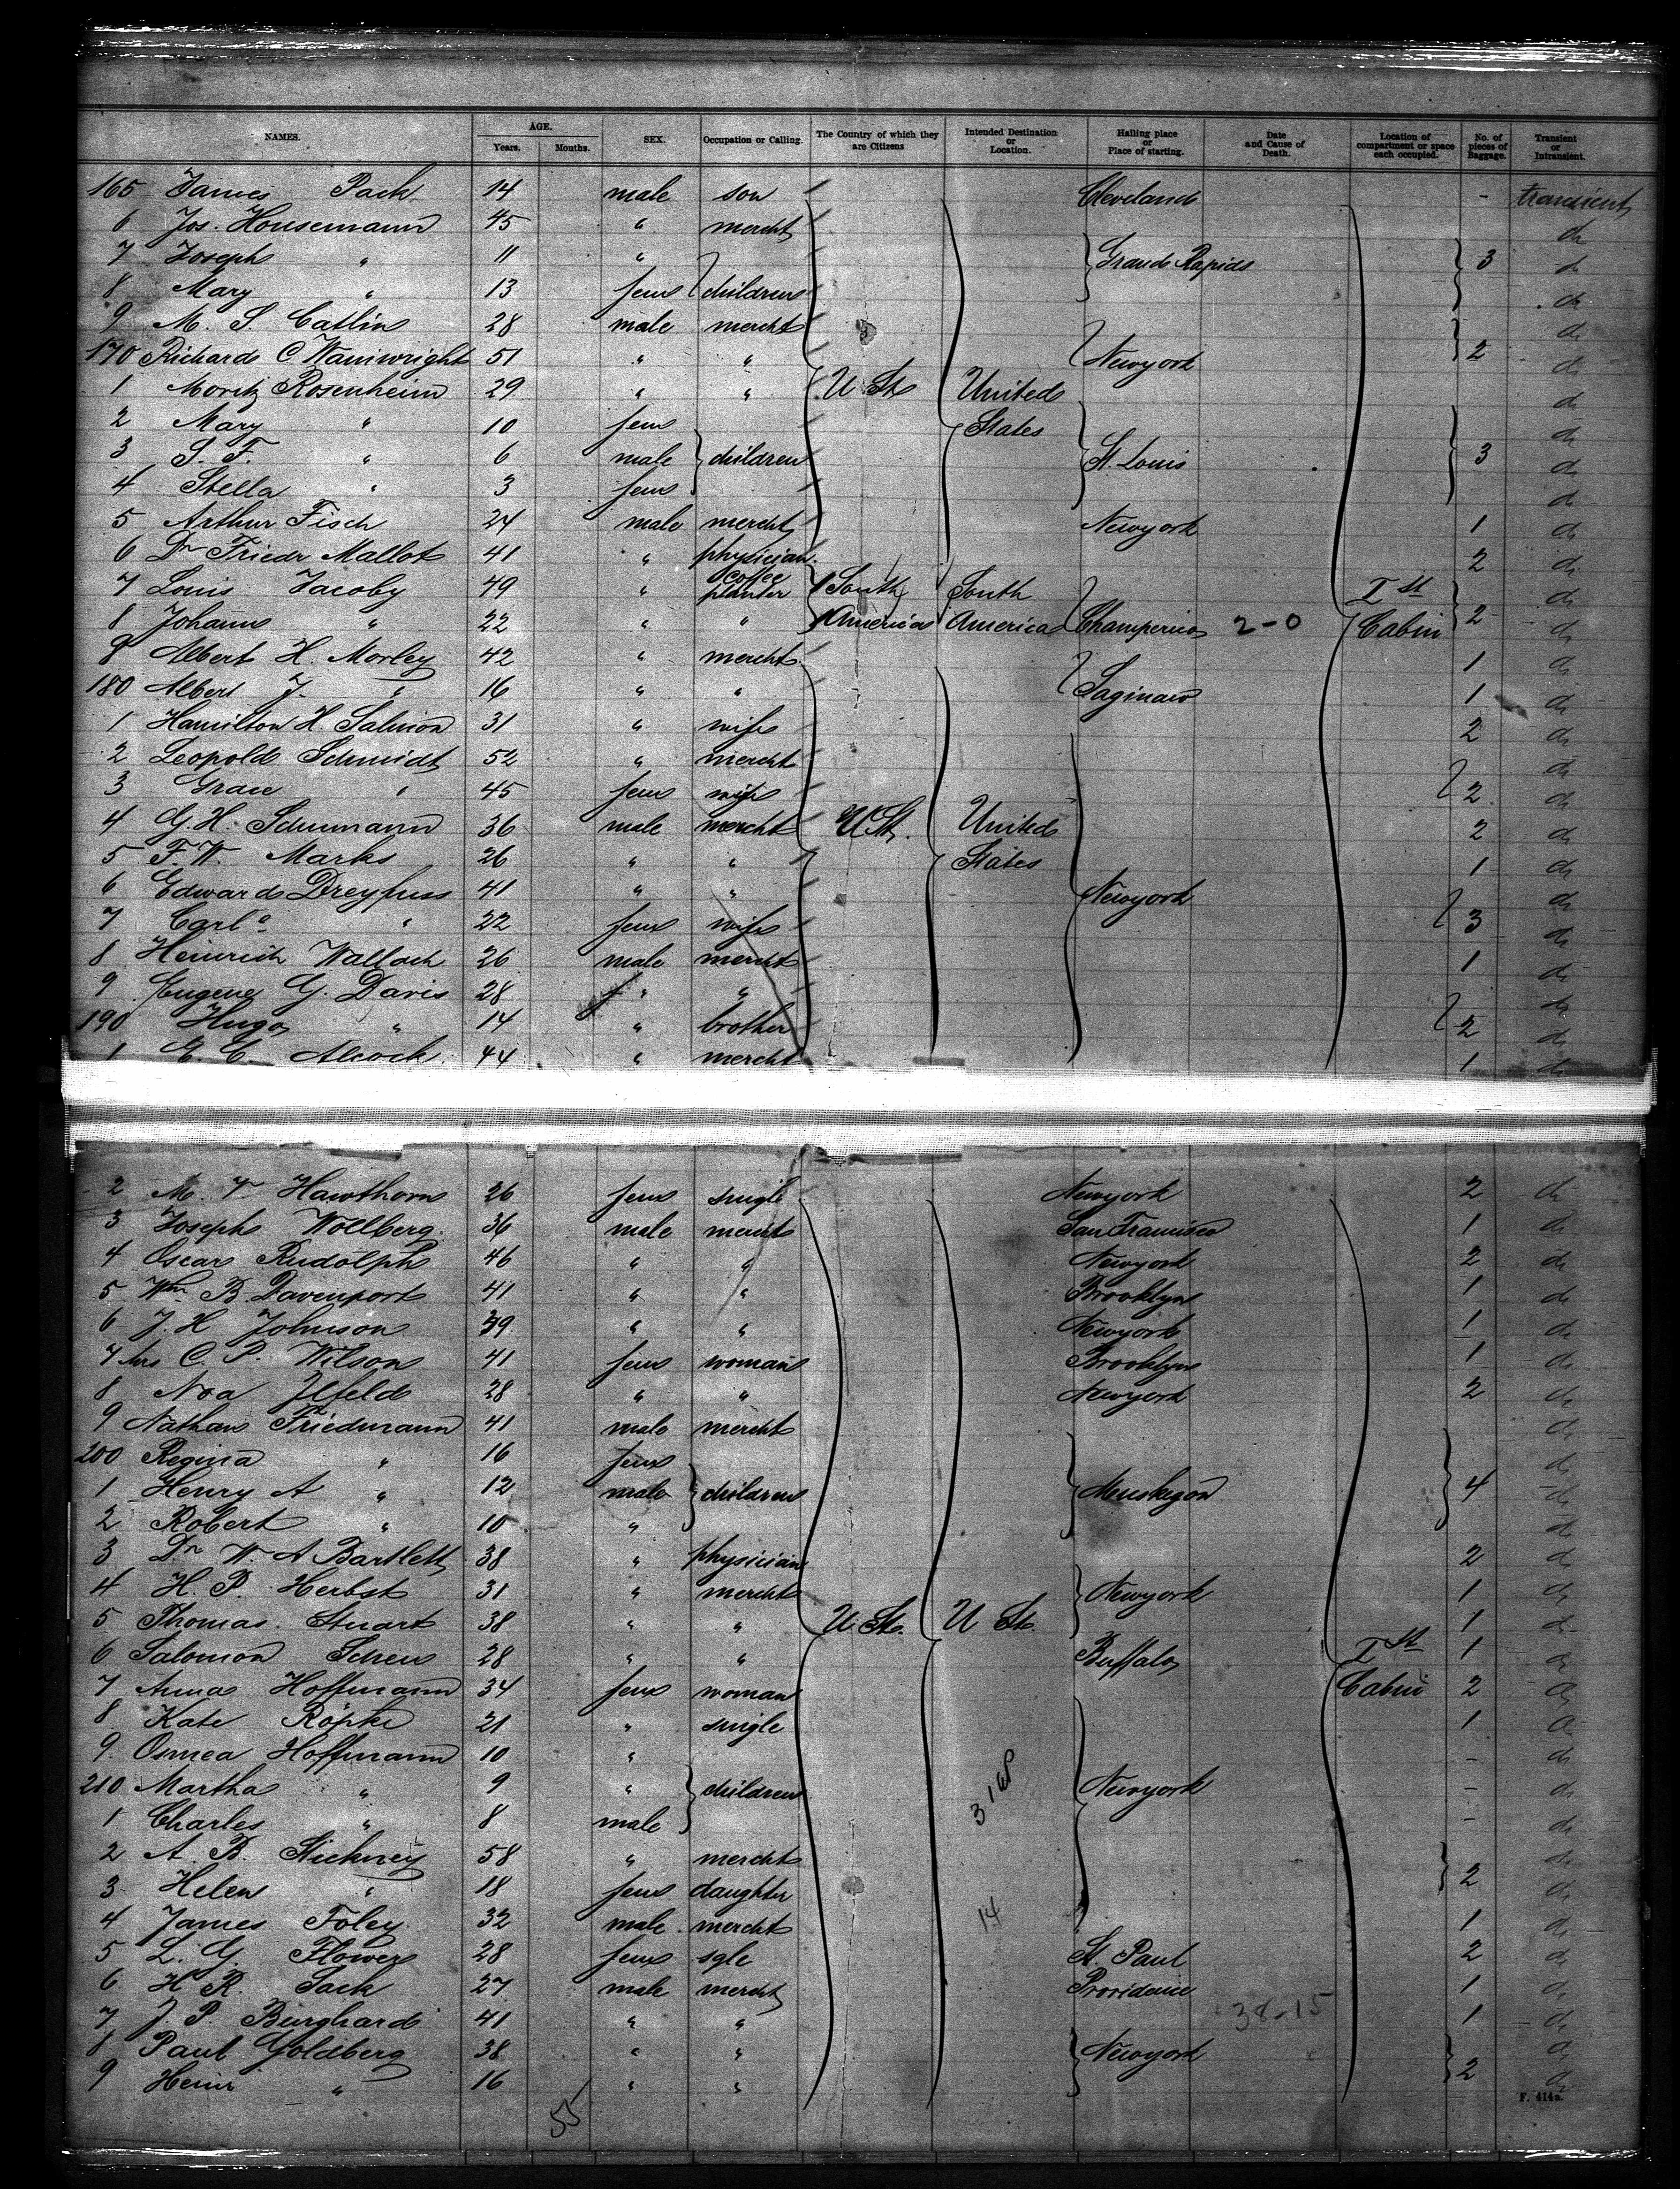 NAMES. AGE. Years. Months. SEX. Occupation or Calling. The Country of which they are Citizens Intended Destination or Location. Hailing place or Place of starting. Date and Cause of Death. Location of compartment or space each occupied. No. of pieces of Baggage. Transient or Intransient.
165 James Pack 14 male son Cleveland - transient
6 Jos. Housemann 45 " mercht do
7 Joseph " 11 " Grand Rapids 3 do
8 Mary " 13 fem children do
9 M. S. Catlin 28 male mercht do
170 Richard C Wainwright 51 " " Newyork 2 do
1 Moritz Rosenheim 29 " " U. St. United do
2 Mary " 10 fem States do
3 S. F. " 6 male children St. Louis 3 do
4 Stella " 3 fem do
5 Arthur Fisch 24 male mercht Newyork 1 do
6 Dr Friedr Mallot 41 " physician 2 do
7 Louis Jacoby 49 " coffee planter South South Ist do
8 Johann " 22 " " America America Champerico 2-0 Cabin 2 do
9 Albert H. Morley 42 " mercht 1 do
180 Albert J. " 16 " " Saginaw 1 do
1 Hamilton H. Salmon 31 " wife 2 do
2 Leopold Schmidt 52 " mercht do
3 Grace " 45 fem wife 2 do
4 G. H. Schumann 36 male mercht U. St. United 2 do
5 F. W. Marks 26 " " States 1 do
6 Edward Dreyfuss 41 " " Newyork do
7 Carla " 22 fem wife 3 do
8 Heinrich Wallach 26 male mercht 1 do
9 Eugene G. Davis 28 " " do
190 Hugo " 14 " brother 2 do
1 G. C. Alcock 44 " mercht 1 do
2 M. T Hawthorn 26 fem single Newyork 2 do
3 Joseph Wollberg. 36 male mercht San Francisco 1 do
4 Oscar Rudolph 46 " " Newyork 2 do
5 Wm B. Davenport 41 " " Brooklyn 1 do
6 J. H Johnson 39 " " Newyork 1 do
7 Mrs C. P. Wilson 41 fem woman Brooklyn 1 do
8 Noa Ilfeld 28 " " Newyork 2 do
9 Nathan Friedmann 41 male mercht do
200 Regina " 16 fem do
1 Henry A " 12 male children Muskegon 4 do
2 Robert " 10 " do
3 Dr W. A Bartlett 38 " physician 2 do
4 H. P. Herbst 31 " mercht Newyork 1 do
5 Thomas Stuart 38 " " U. St. U St. 1 do
6 Salomon Scheu 28 " " Buffalo Ist 1 do
7 Anna Hoffmann 34 fem woman Cabin 2 do
8 Kate Röpke 21 " single 1 do
9. Osmea Hoffmann 10 " - do
210 Martha " 9 " children Newyork - do
1 Charles " 8 male - do
2 A. B. Stickney 58 " mercht do
3 Helen " 18 fem daughter 2 do
4 James Foley 32 male mercht 14 1 do
5 L. G. Flower 28 fem sgle St. Paul 2 do
6 H R. Sack 27 male mercht Providence 1 do
7 J. P. Burghard 41 " " 38-15 1 do
8 Paul Goldberg 38 " " Newyork do
9 Henri " 16 " " 2 do
55
F. 414a.